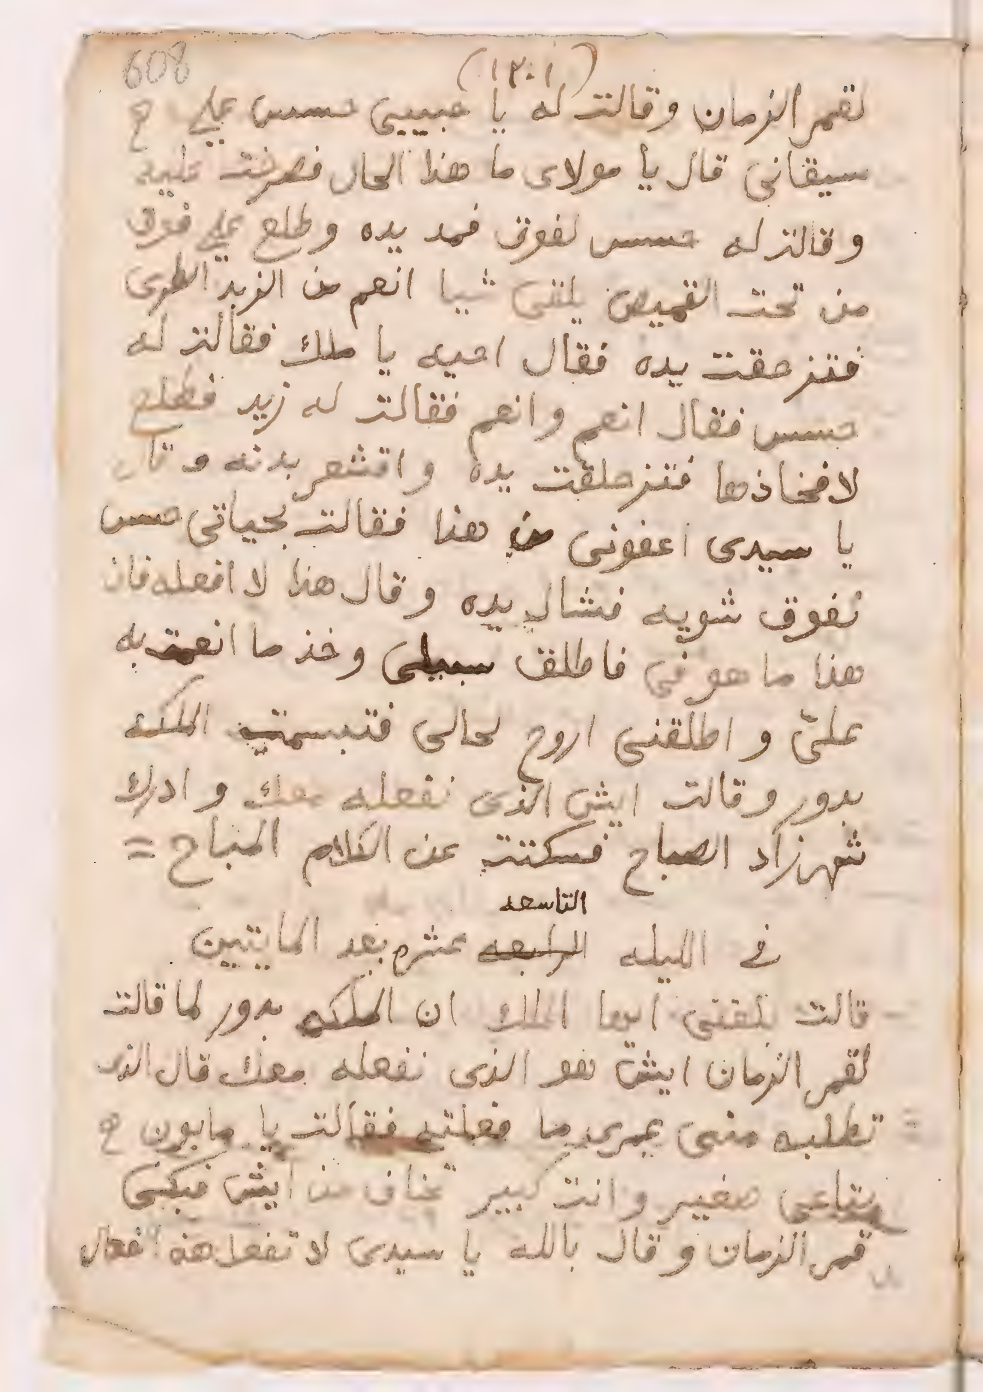 608
(١٢٠١)
لقمر الزمان وقالت له يا حبيبى حسس على ح
سيقانى قال يا مولاى ما هذا الحال فصرخت عليه
وقالت له حسس لفوق فمد يده وطلع على فوق
من تحت القميص يلقى شيا انعم من الزبد الطرى
فتزحقت يده فقال احيه يا ملك فقالت له
حسس فقال انعم وانعم فقالت له زيد فطلع
لافخاذها فتزحلقت يده واقشعر بدنه وقال
يا سيدى اعفونى من هذا فقالت بحياتى حسس
لفوق شويه فشال يده وقال هذا لا افعله فان
هذا ما هو فى فاطلق سبيلى وخذ ما انعمت به
علىّ واطلقنى اروح لحالى فتبسمت الملكه
بدور وقالت ايش الذى نفعله معك وادرك
شهرزاد الصباح فسكتت عن الكلام المباح =
التاسعه
فى الليله الرابعه عشر بعد المايتين
قالت بلغنى ايها الملك ان الملكه بدور لما قالت
لقمر الزمان ايش هو الذى نفعله معك قال الذى
تطلبه منى بعمرى ما فعلته فقالت يا مابون ح
بتاعى صغير وانت كبير تخاف من ايش فبكى
قمر الزمان وقال بالله يا سيدى لا تفعل هذه الفعال